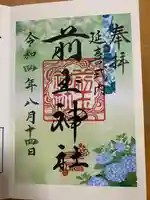 奉拝
延喜式内
前玉神社
令和四年八月十四日